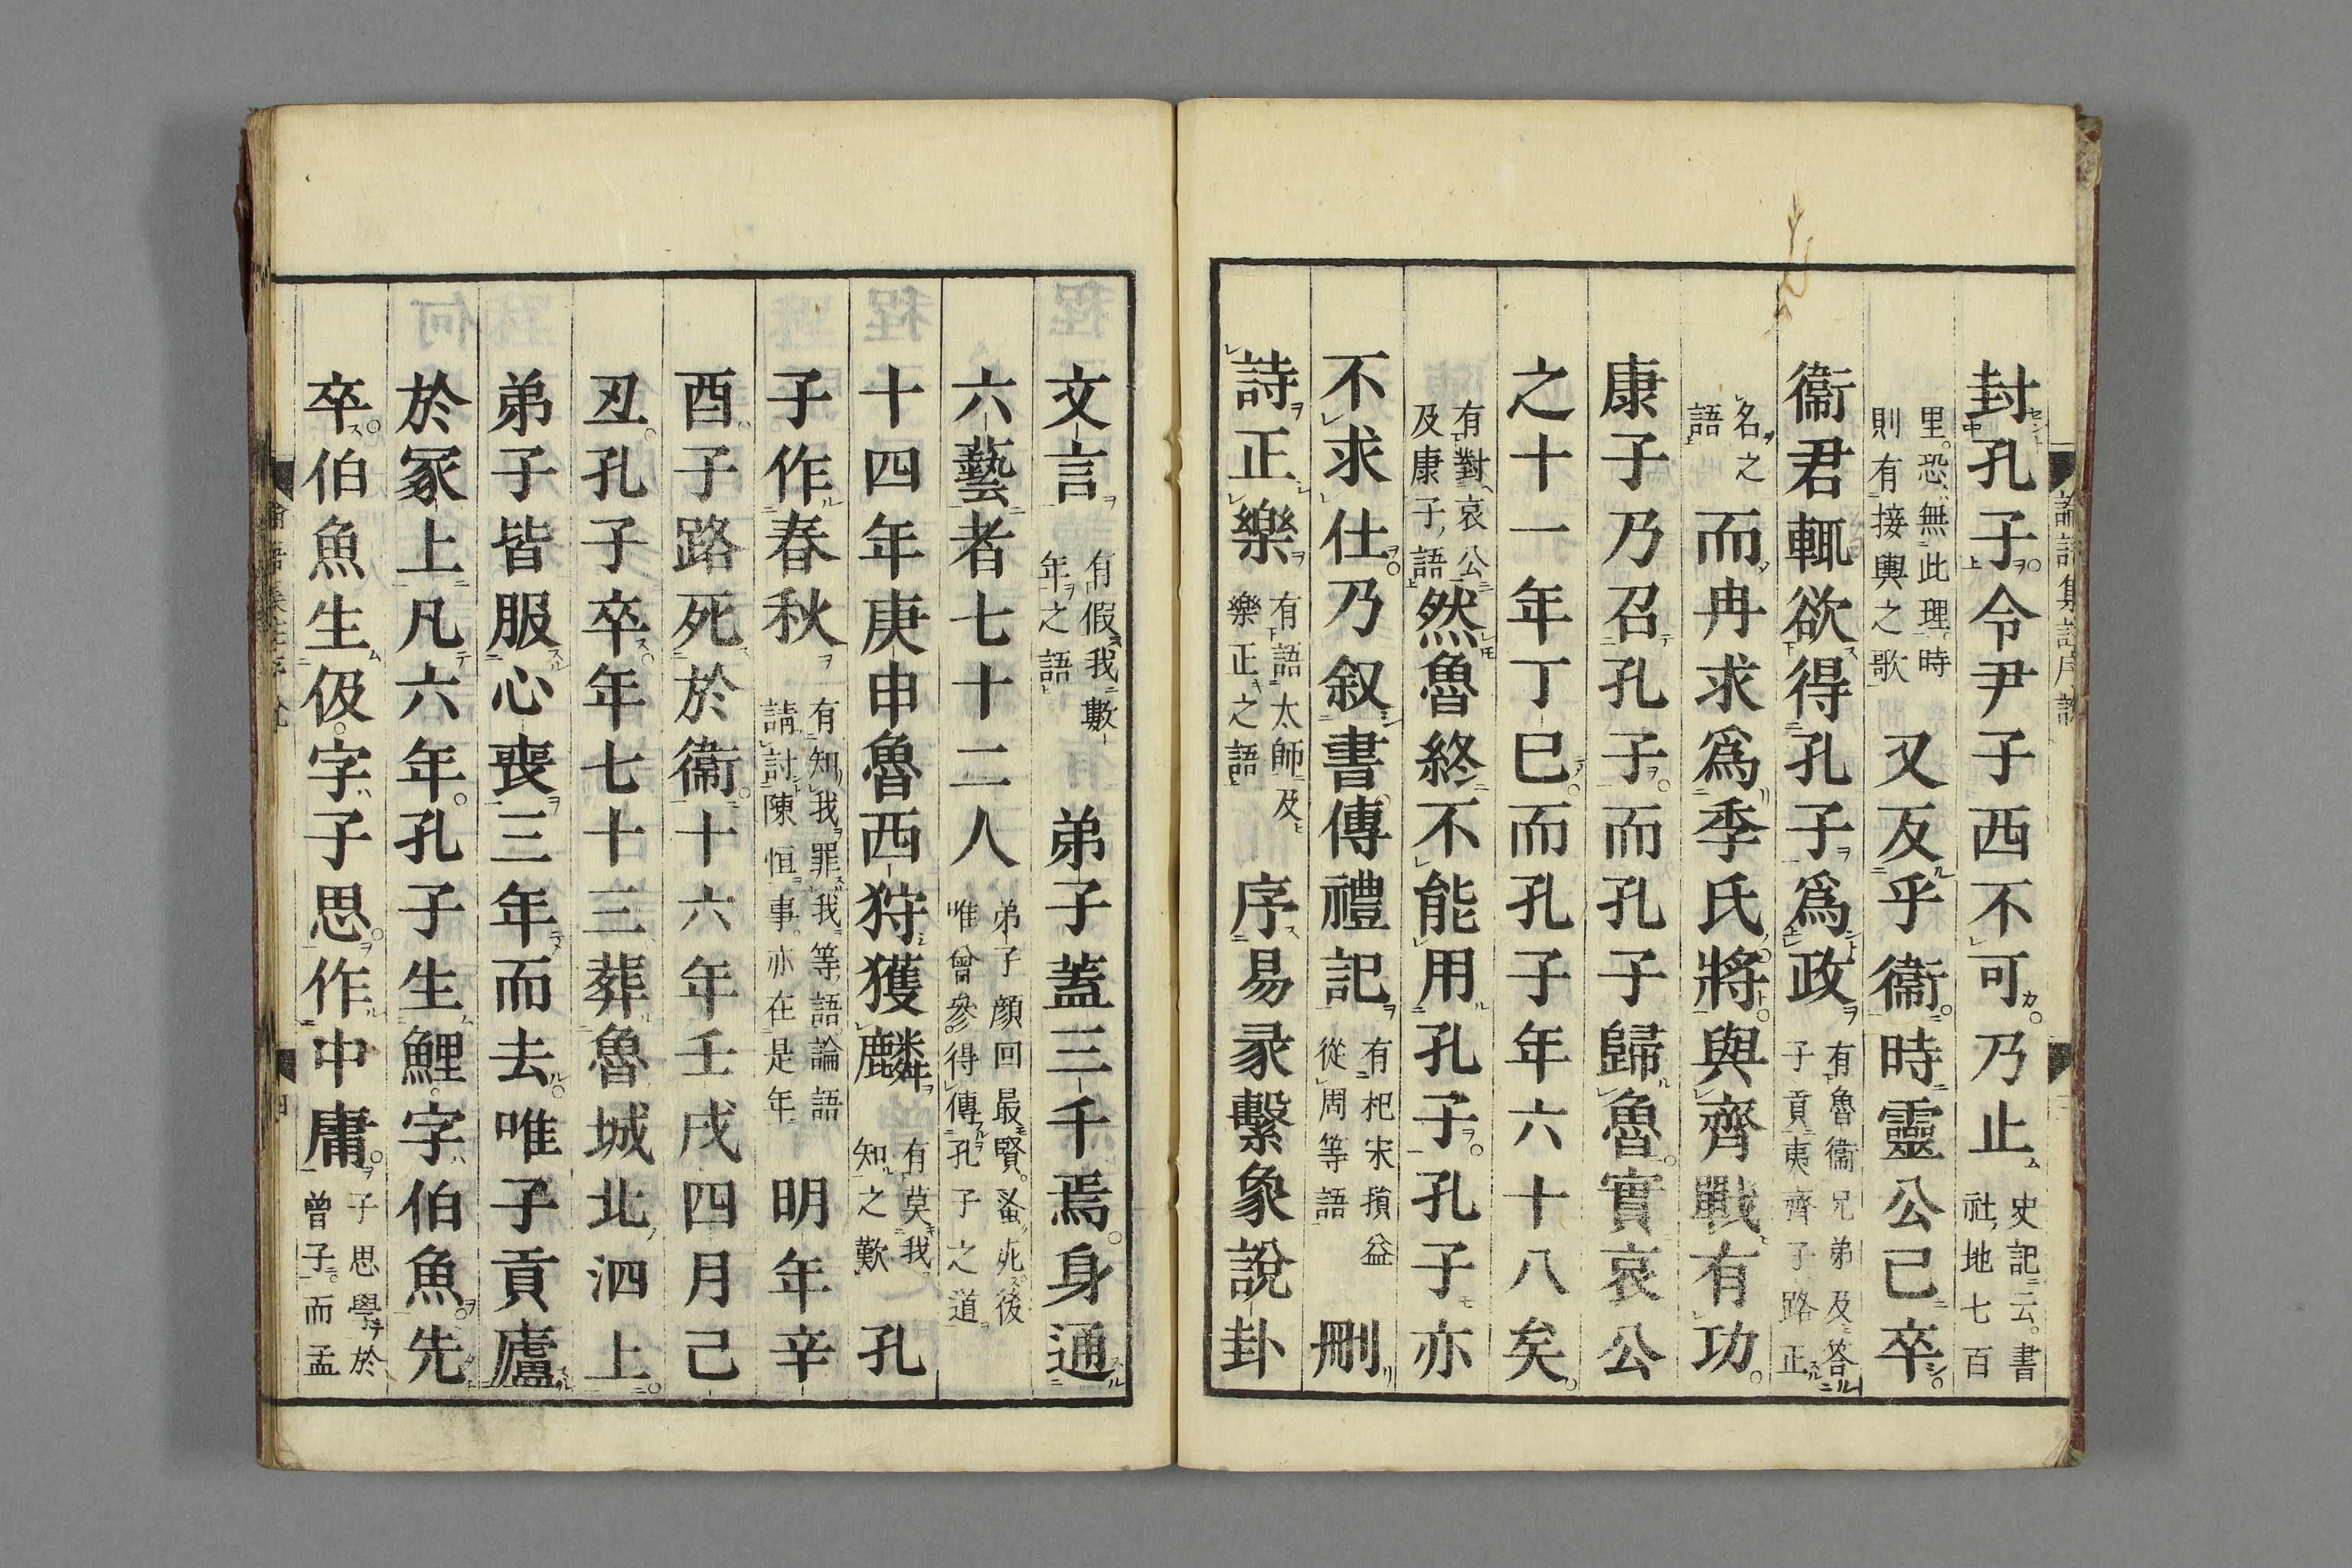 封孔子令尹子西不可乃止史記云書社地七百
里恐無此理時則有接輿之歌又反乎衞時靈公已卒
衞君輒欲得孔子爲政有魯衞兄弟及答子貢夷齊子路正
名之語而冉求爲季氏將與齊戰有功
康子乃召孔子而孔子歸魯實哀公
之十一年丁巳而孔子年六十八矣
有對哀公及康子語然魯終不能用孔子孔子亦
不求仕乃叙書傳禮記有杞宋損益從周等語刪
詩正樂有語太師及樂正之語序易彖繫象說卦
文言有假我數年之語弟子蓋三千焉身通
六藝者七十二人弟子顏回最賢蚤死後唯曾參得傳孔子之道
十四年庚申魯西狩獲麟有莫我知之歎孔
子作春秋有知我罪我等語論語請討陳恒事亦在是年明年辛
酉子路死於衞十六年壬戌四月己
丑孔子卒年七十三葬魯城北泗上
弟子皆服心喪三年而去唯子貢廬
於冢上凡六年孔子生鯉字伯魚先
卒伯魚生伋字子思作中庸子思學於曾子而孟